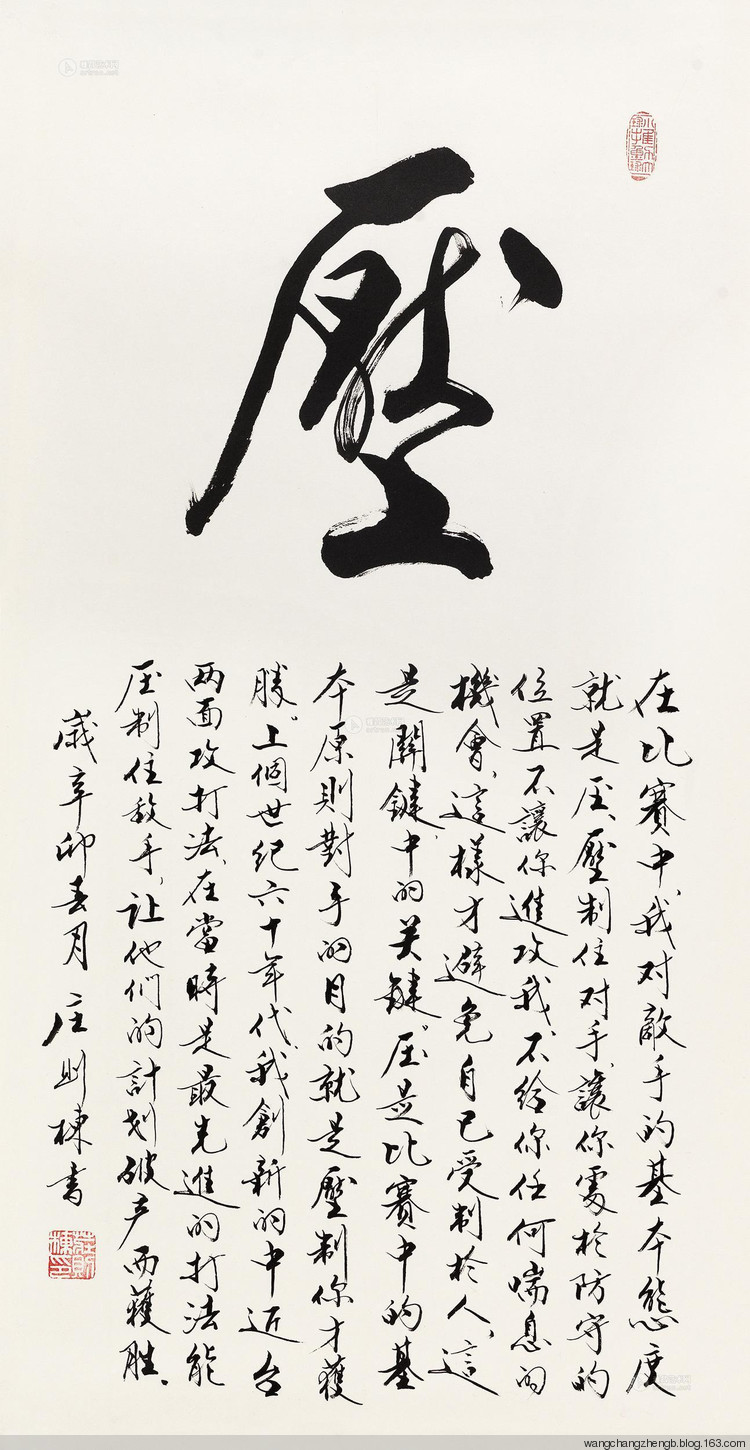 壓
在比賽中,我对敵手的基本態度
就是压、壓制住对手,讓你處於防守的
位置不讓你進攻我,不给你任何喘息的
機會,這樣才避免自己受制於人、這
是關鍵中的关鍵。压是比賽中的基
本原則對手的目的就是壓制你才獲
勝。上個世纪六十年代,我創新的中近台
两面攻打法,在當時是最先進的打法能
压制住敌手,让他們的計划破产而獲胜、
歲辛卯春月 庄则棟书
莊則棟印
wangchangzhengb.blog.163.com